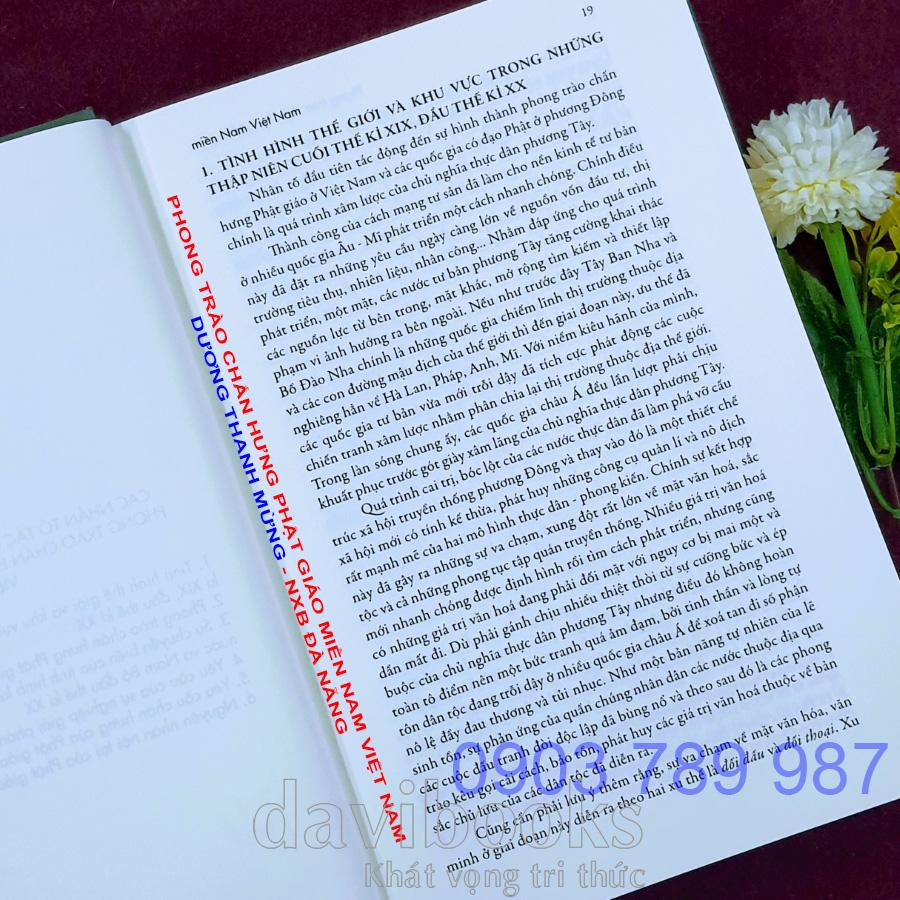 19
miền Nam Việt Nam
1. TÌNH HÌNH THẾ GIỚI VÀ KHU VỰC TRONG NHỮNG
THẬP NIÊN CUỐI THẾ KỈ XIX, ĐẦU THẾ KỈ XX
Nhân tố đầu tiên tác động đến sự hình thành phong trào chấn
hưng Phật giáo ở Việt Nam và các quốc gia có đạo Phật ở phương Đông
chính là quá trình xâm lược của chủ nghĩa thực dân phương Tây.
Thành công của cách mạng tư sản đã làm cho nền kinh tế tư bản
ở nhiều quốc gia Âu - Mĩ phát triển một cách nhanh chóng. Chính điều
này đã đặt ra những yêu cầu ngày càng lớn về nguồn vốn đầu tư, thị
trường tiêu thụ, nhiên liệu, nhân công... Nhằm đáp ứng cho quá trình
phát triển, một mặt, các nước tư bản phương Tây tăng cường khai thác
các nguồn lực từ bên trong, mặt khác, mở rộng tìm kiếm và thiết lập
phạm vi ảnh hưởng ra bên ngoài. Nếu như trước đây Tây Ban Nha và
Bồ Đào Nha chính là những quốc gia chiếm lĩnh thị trường thuộc địa
và các con đường mậu dịch của thế giới thì đến giai đoạn này, ưu thế đã
nghiêng hẳn về Hà Lan, Pháp, Anh, Mĩ. Với niềm kiêu hãnh của mình,
các quốc gia tư bản vừa mới trỗi dậy đã tích cực phát động các cuộc
chiến tranh xâm lược nhằm phân chia lại thị trường thuộc địa thế giới.
Trong làn sóng chung ấy, các quốc gia châu Á đều lần lượt phải chịu
khuất phục trước gót giày xâm lăng của chủ nghĩa thực dân phương Tây.
Quá trình cai trị, bóc lột của các nước thực dân đã làm phá vỡ cấu
trúc xã hội truyền thống phương Đông và thay vào đó là một thiết chế
xã hội mới có tính kế thừa, phát huy những công cụ quản lí và nô dịch
rất mạnh mẽ của hai mô hình thực dân - phong kiến. Chính sự kết hợp
này đã gây ra những sự va chạm, xung đột rất lớn về mặt văn hoá, sắc
tộc và cả những phong tục tập quán truyền thống. Nhiều giá trị văn hoá
mới nhanh chóng được định hình rồi tìm cách phát triển, nhưng cũng
có những giá trị văn hoá đang phải đối mặt với nguy cơ bị mai một và
dần mất đi. Dù phải gánh chịu nhiều thiệt thòi từ sự cưỡng bức và ép
buộc của chủ nghĩa thực dân phương Tây nhưng điều đó không hoàn
toàn tô điểm nên một bức tranh quá ảm đạm, bởi tinh thần và lòng tự
tôn dân tộc đang trỗi dậy ở nhiều quốc gia châu Á để xoá tan đi số phận
nô lệ đầy đau thương và tủi nhục. Như một bản năng tự nhiên của lẽ
sinh tồn, sự phản ứng của quần chúng nhân dân các nước thuộc địa qua
các cuộc đấu tranh đòi độc lập đã bùng nổ và theo sau đó là các phong
trào kêu gọi cải cách, bảo tồn, phát huy các giá trị văn hoá thuộc về bản
sắc cố hữu của các dân tộc đã diễn ra.
Cũng cần phải lưu ý thêm rằng, sự va chạm về mặt văn hóa, văn
minh ở giai đoạn này diễn ra theo hai xu thế là đối đầu và đối thoại. Xu
PHONG TRÀO CHẤN HƯNG PHẬT GIÁO MIỀN NAM VIỆT NAM
DƯƠNG THANH MỪNG - NXB ĐÀ NẴNG
0903 789 987
davibooks
Khát vọng tri thức